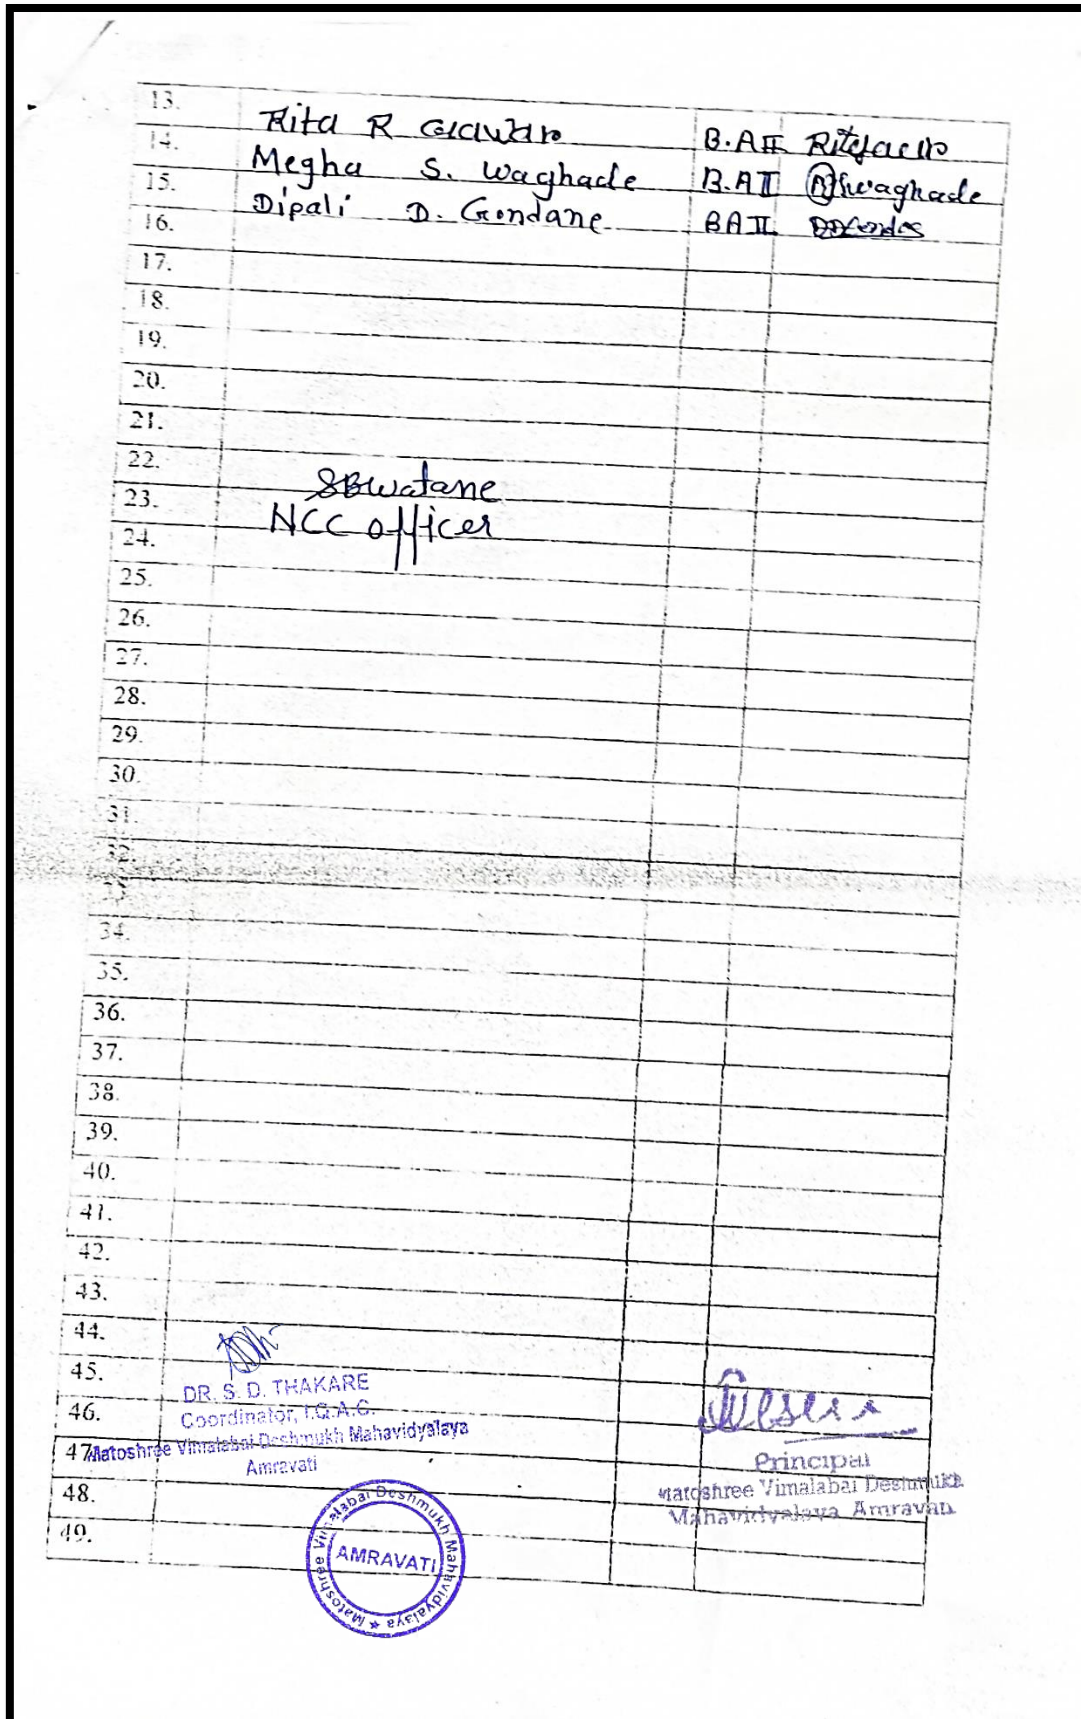 13. Rita R B.A II
14. Megha S. Waghade B.A I Waghade
15. Dipali D. Gondane BA II
16.
17.
18.
19.
20.
21.
22.
23. SBWatane
24. NCC officer
25.
26.
27.
28.
29.
30.
31.
32.
33.
34.
35.
36.
37.
38.
39.
40.
41.
42.
43.
44.
45.
DR. S. D. THAKARE
46. Coordinator, I.Q.A.C.
47. Matoshree Vimalabai Deshmukh Mahavidyalaya
Amravati
Principal
Matoshree Vimalabai Deshmukh
Mahavidyalaya Amravati
48.
49.
Matoshree Vimalabai Deshmukh Mahavidyalaya ★
AMRAVATI